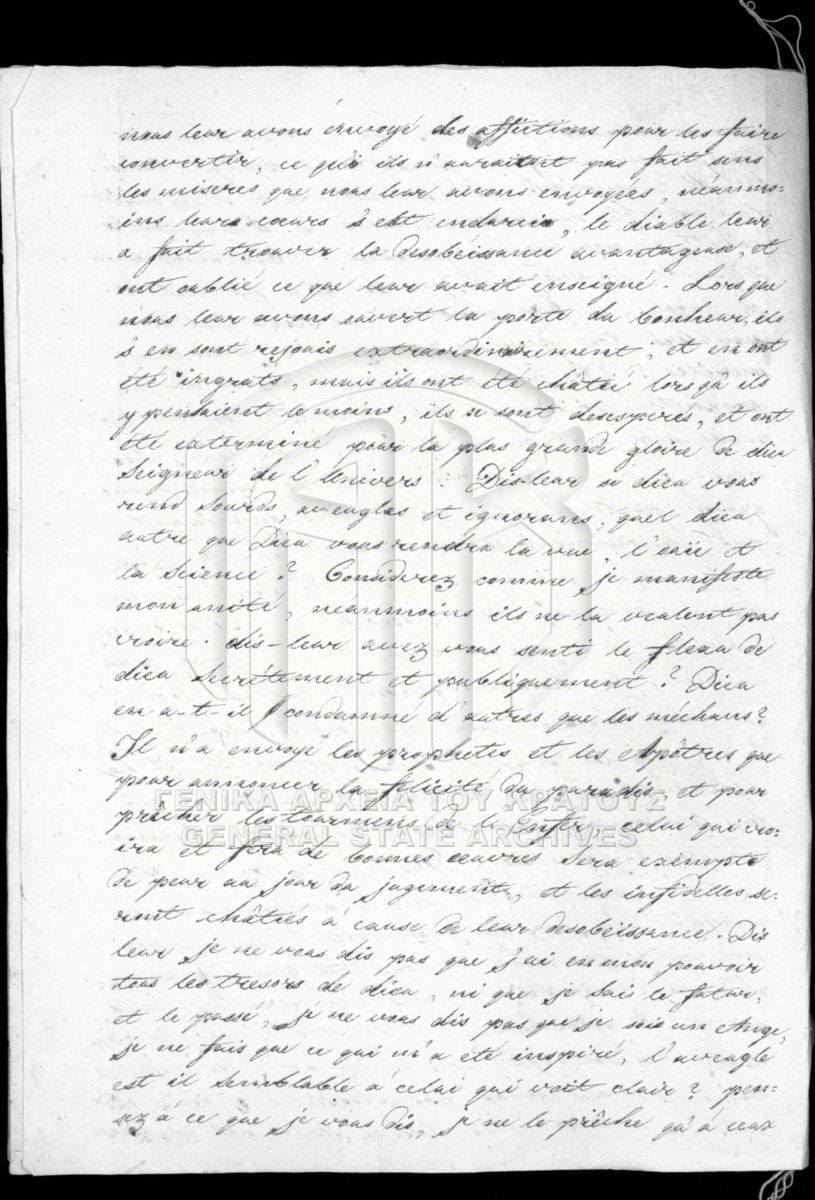 nous leur avons énvoyé des afflictions pour les faire
convertir, ce qu'ils n'auraient pas fait sens
les miseres que nous leur avons envoyees, néanmo-
ins leurs cœurs s'est endurcie, le diable leur
a fait trouver la desobéissance avantageuse, et
ont oublié ce que leur avait enseigné. Lors que
nous leur avons ouvert la porte du bonheur, ils
s'en sont rejouis extraordinairement, et en ont
été ingrats, mais ils ont été châtié lors qu'ils
y pensaient le moins, ils se sont desesperés, et ont
été exterminé pour la plus grande gloire de dieu
Seigneur de l'Univers. Dis-leur si dieu vous
rend Sourds, aveugles et ignorans, quel dieu
autre que Dieu vous rendra la vue, l'ouïe et
la Science? Considerez comme je manifeste
mon unité, néanmoins ils ne la veulent pas
croire. dis-leur avez vous senti le fleau de
dieu Secrétement et publiquement? Dieu
en a-t-il condamné d'autres que les méchans?
Il n'a envoyé les prophetes et les Apôtres que
pour annoncer la félicité du paradis et pour
prêcher les tourmens de l'Enfer, celui qui cro-
ira et fera de bonnes œuvres Sera exémpte
de peur au jour du jugement, et les infidelles se-
ront châtiés à cause de leur desobéissance. Dis
leur je ne vous dis pas que j'ai en mon pouvoir
tous les tresors de dieu, ni que je sais le futur,
et le passé, je ne vous dis pas que je suis un Ange,
je ne fais que ce qui m'a été inspiré, l'aveugle
est il Semblable à celui qui voit clair? pen-
sez à ce que je vous dis, je ne le prêche qu'à ceux
ΓΕΝΙΚΑ ΑΡΧΕΙΑ ΤΟΥ ΚΡΑΤΟΥΣ
GENERAL STATE ARCHIVES